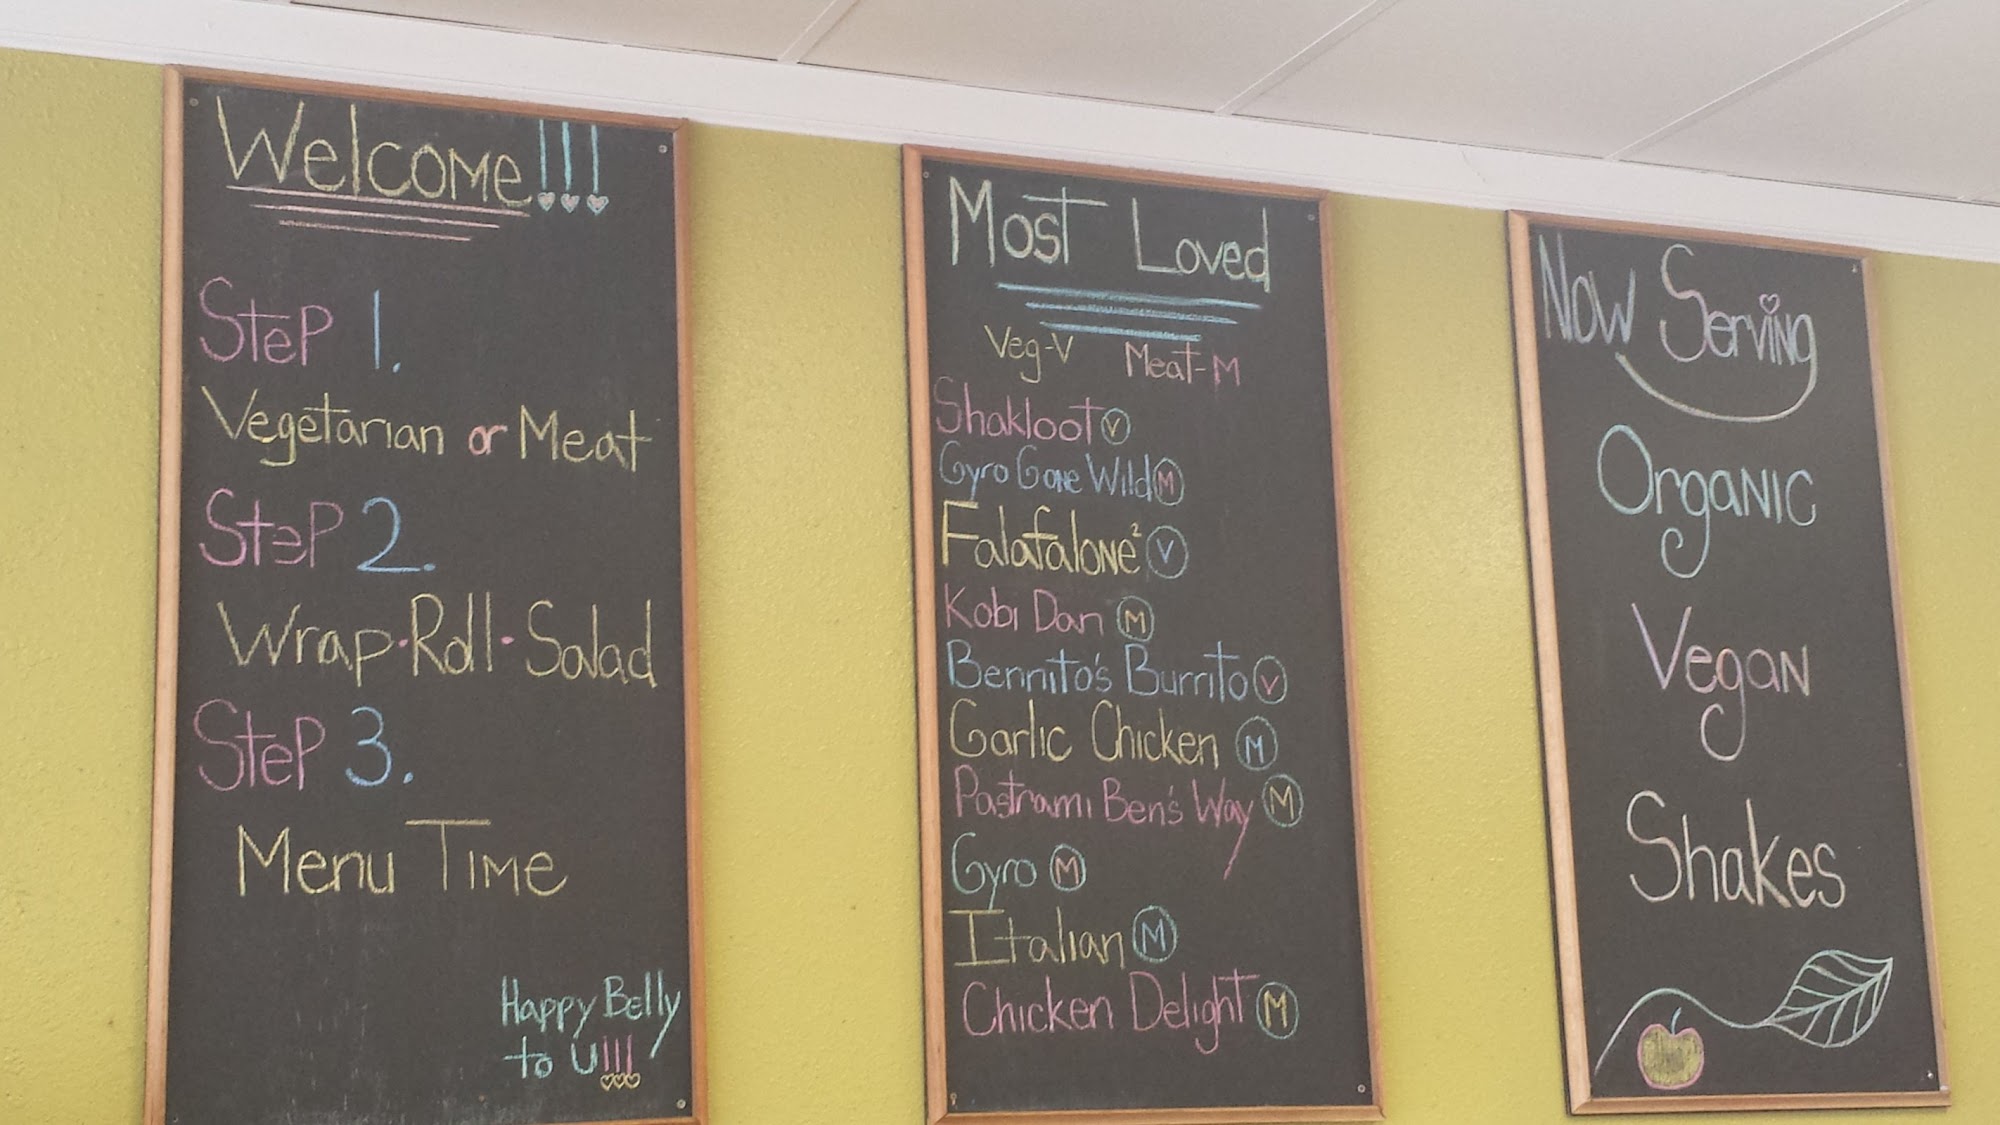 Welcome!!!
Step 1.
Vegetarian or Meat
Step 2.
Wrap·Roll·Salad
Step 3.
Menu Time
Happy Belly
to U!!!
Most Loved
Veg-V Meat-M
Shakloot V
Gyro Gone Wild M
Falafalone² V
Kobi Dan M
Bennito's Burrito V
Garlic Chicken M
Pastrami Ben's Way M
Gyro M
Italian M
Chicken Delight M
Now Serving
Organic
Vegan
Shakes